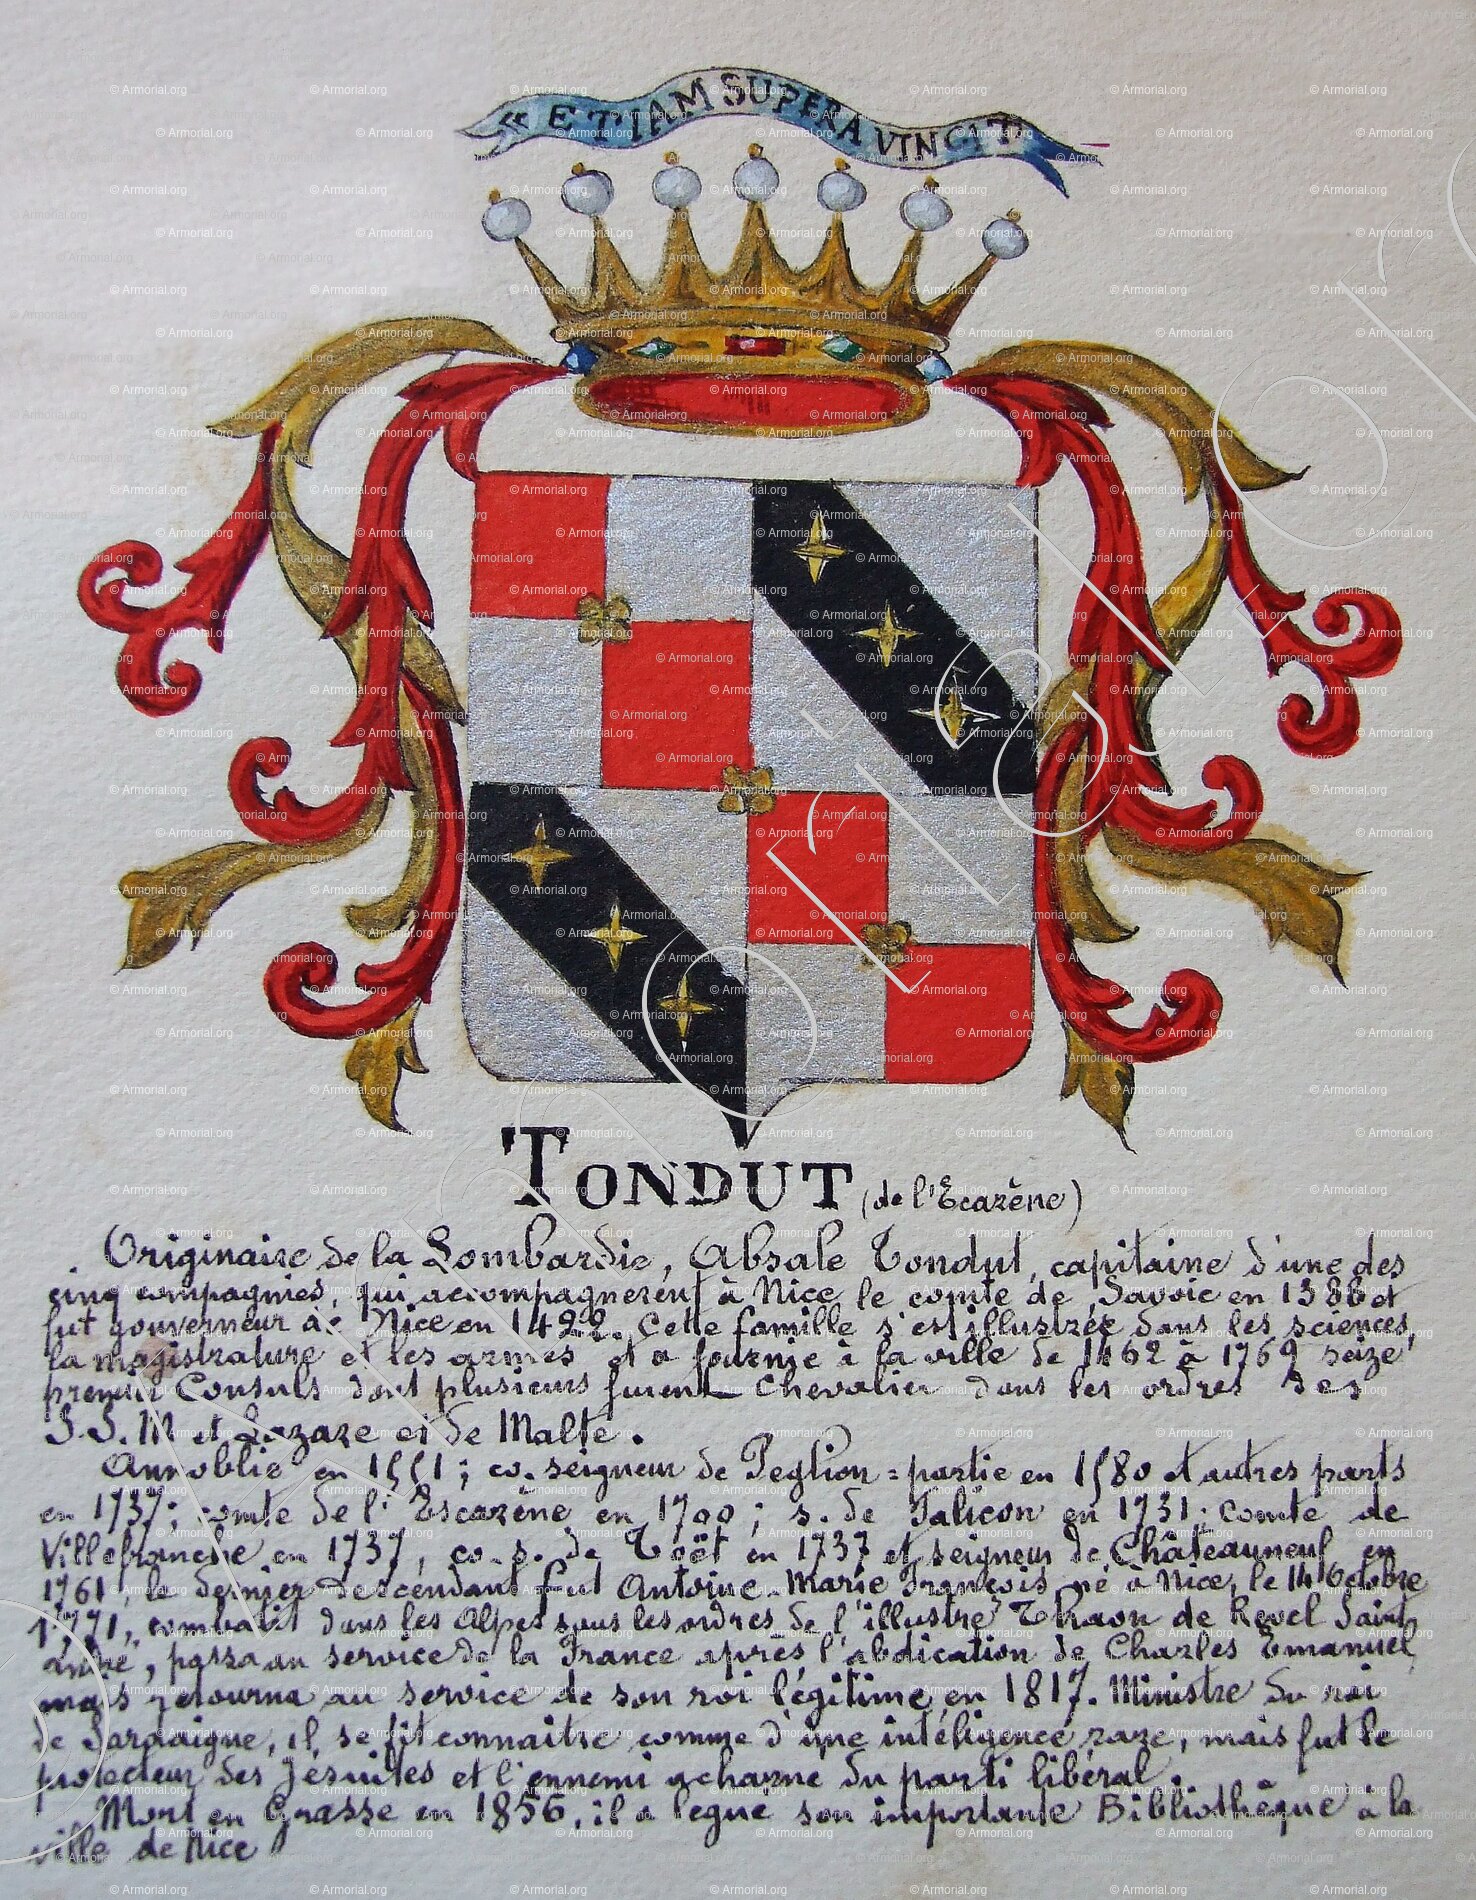 « ETIAM SUPERA VINCIT
TONDUT (de l'Ecarène)
Originaire de la Lombardie, Absale Tondut, capitaine d'une des
cinq compagnies, qui accompagnerent à Nice le comte de Savoie en 1388 et
fut gouverneur à Nice en 1499. Cette famille s'est illustrée dans les sciences,
la magistrature et les armes et a fournie à la ville de 1462 à 1769 seize
premier Consuls dont plusieurs furent Chevalier dans les ordres des
S.S. M et Lazare et de Malte.
Annoblie en 1551; co-seigneur de Peglion = partie en 1580 et autres parts
en 1737; comte de l'Escarène en 1700; s. de Falicon en 1731; comte de
Villefranche en 1737, co. s. de Toët en 1737 et seigneur de Chateauneuf en
1761, le dernier descendant fut Antoine-Marie François né à Nice, le 14 octobre
1771, combatit dans les Alpes sous les ordres de l'illustre Thaon de Revel Saint
André, passa au service de la France après l'abdication de Charles Emanuel,
mais retourna au service de son roi légitime en 1817. Ministre du roi
de Sardaigne, il se fit connaitre comme d'une inteligence rare, mais fut le
protecteur des Jesuites et l'ennemi acharné du parti libéral.
Mort en Grasse en 1856, il a legué son importante Bibliothèque à la
ville de Nice
© Armorial.org